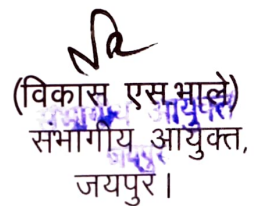 (विकास एस भाले)
संभागीय आयुक्त,
जयपुर।